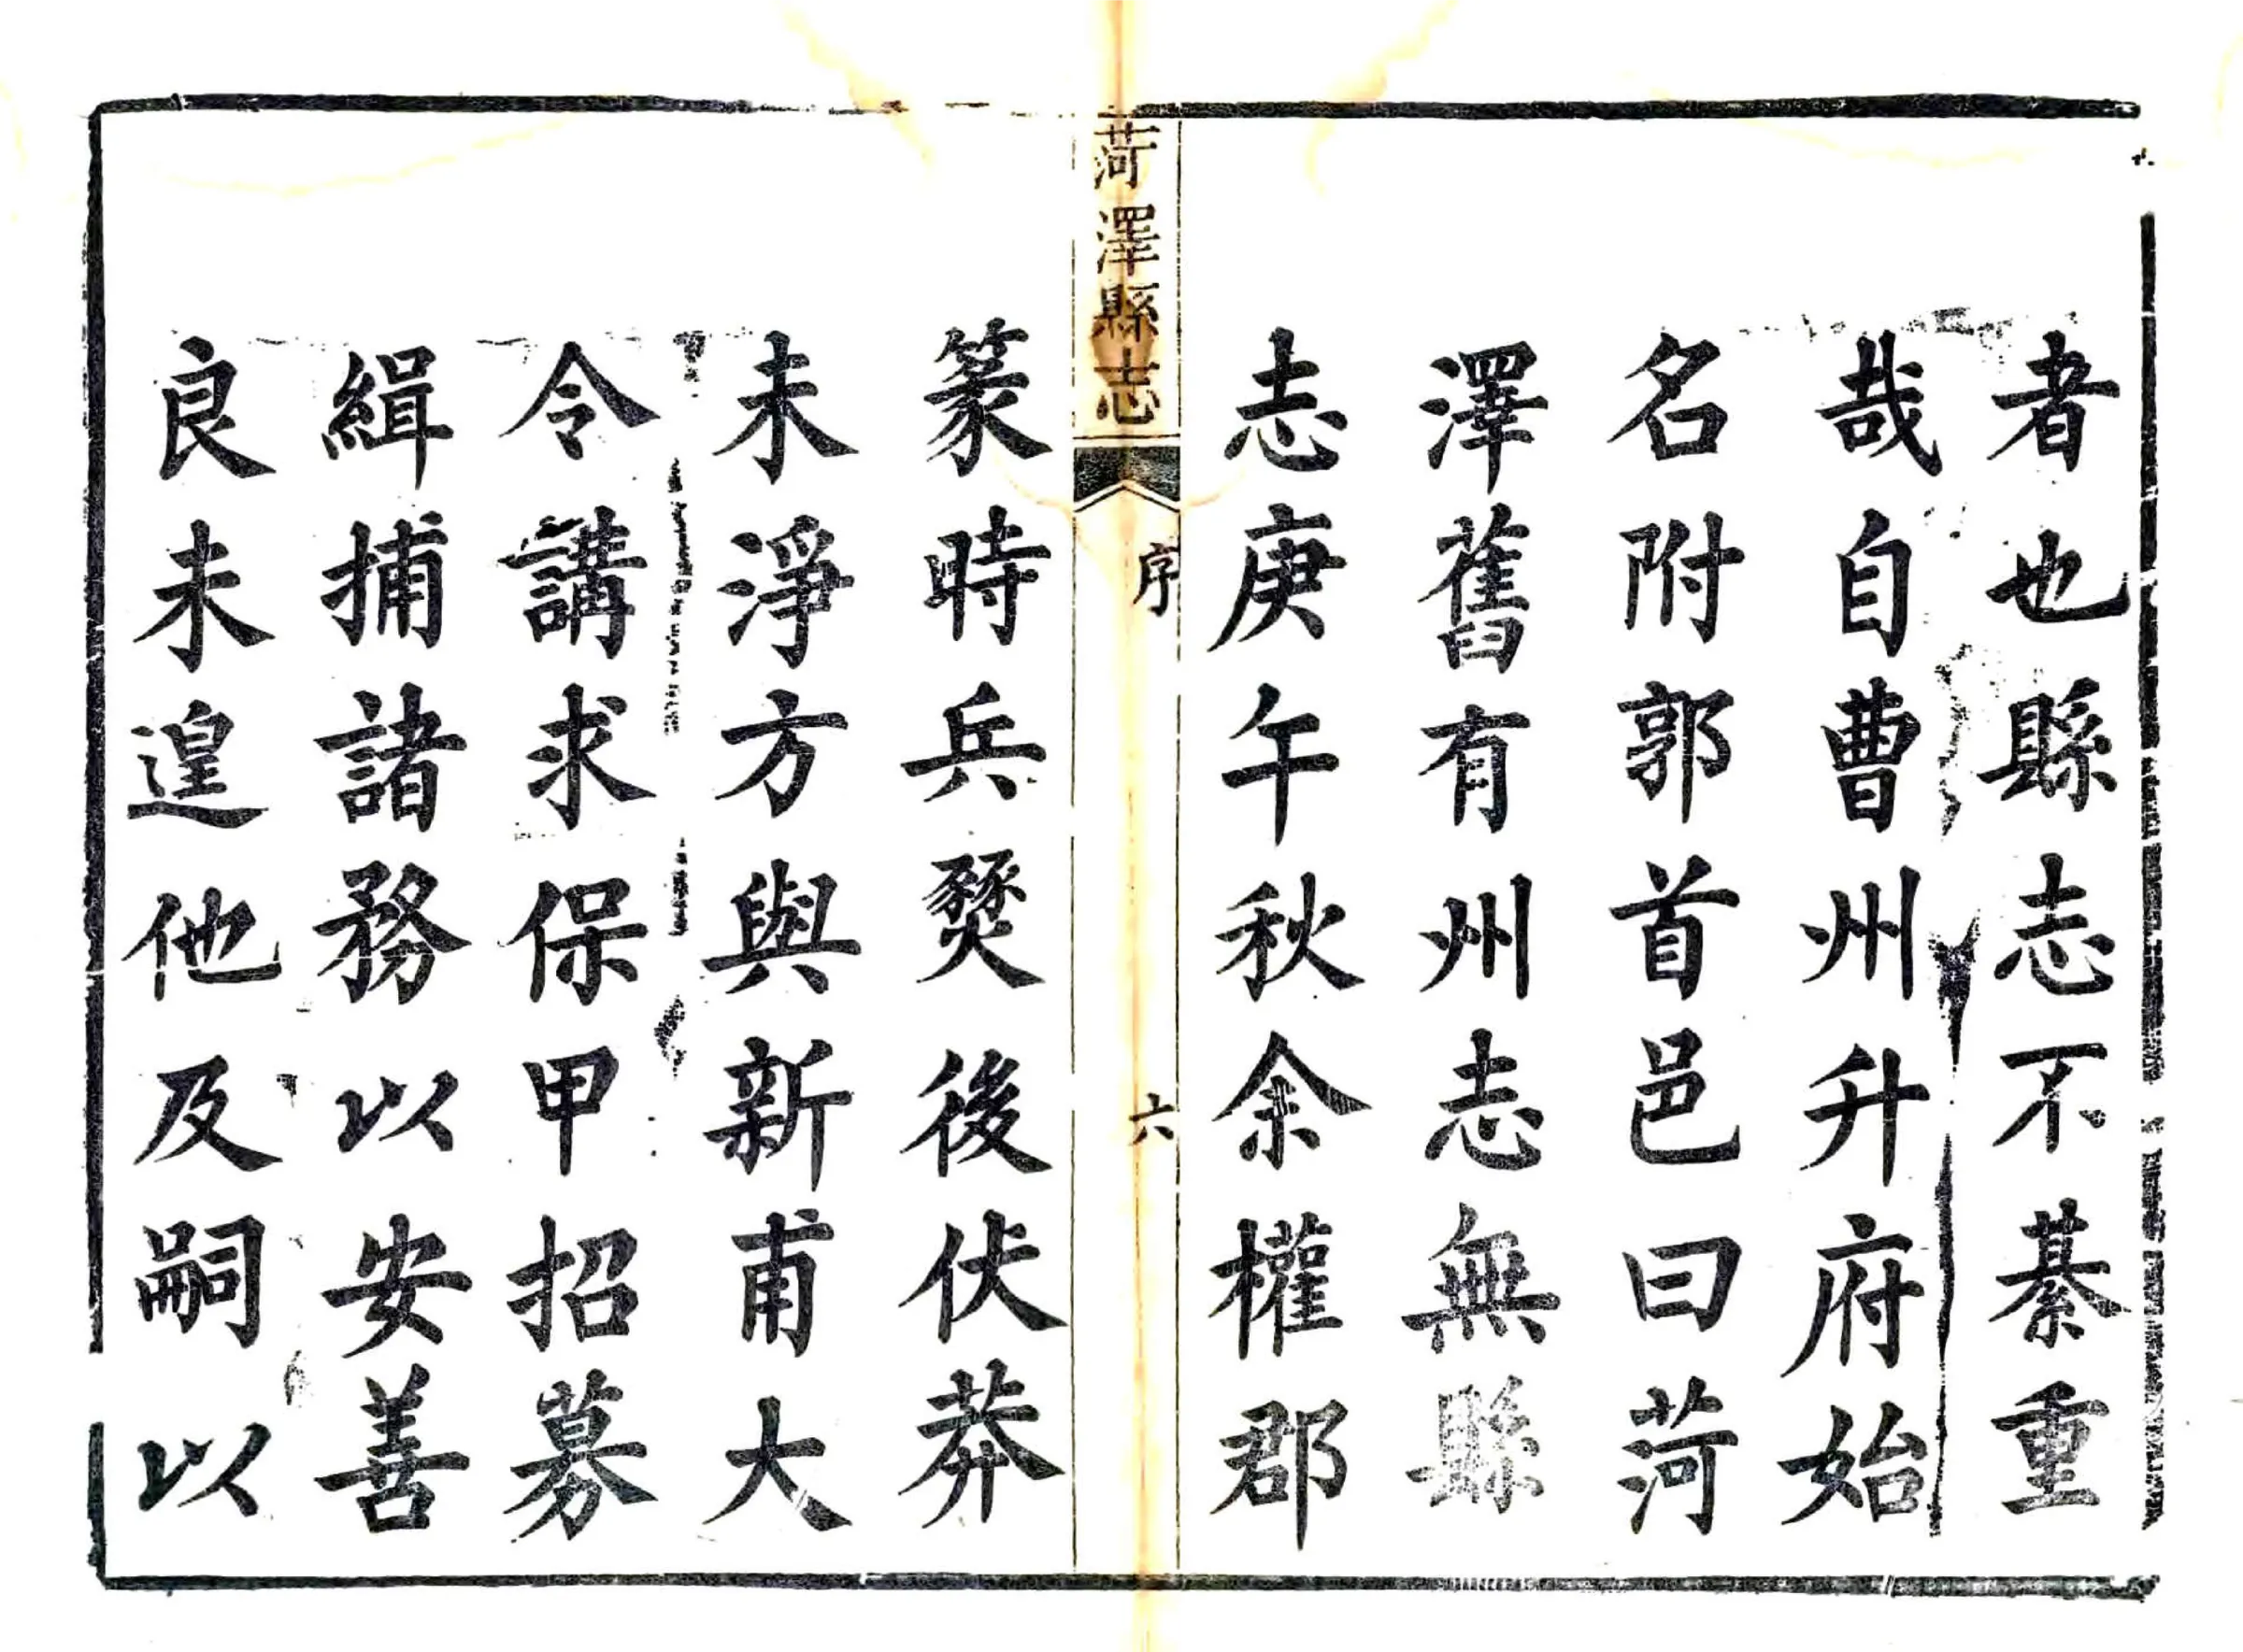 者也縣志不綦重
哉自曹州升府始
名附郭首邑曰菏
澤舊有州志無縣
志庚午秋余權郡
菏澤縣志
序
六
篆時兵燹後伏莽
未淨方與新甫大
令講求保甲招募
緝捕諸務以安善
良未遑他及嗣以